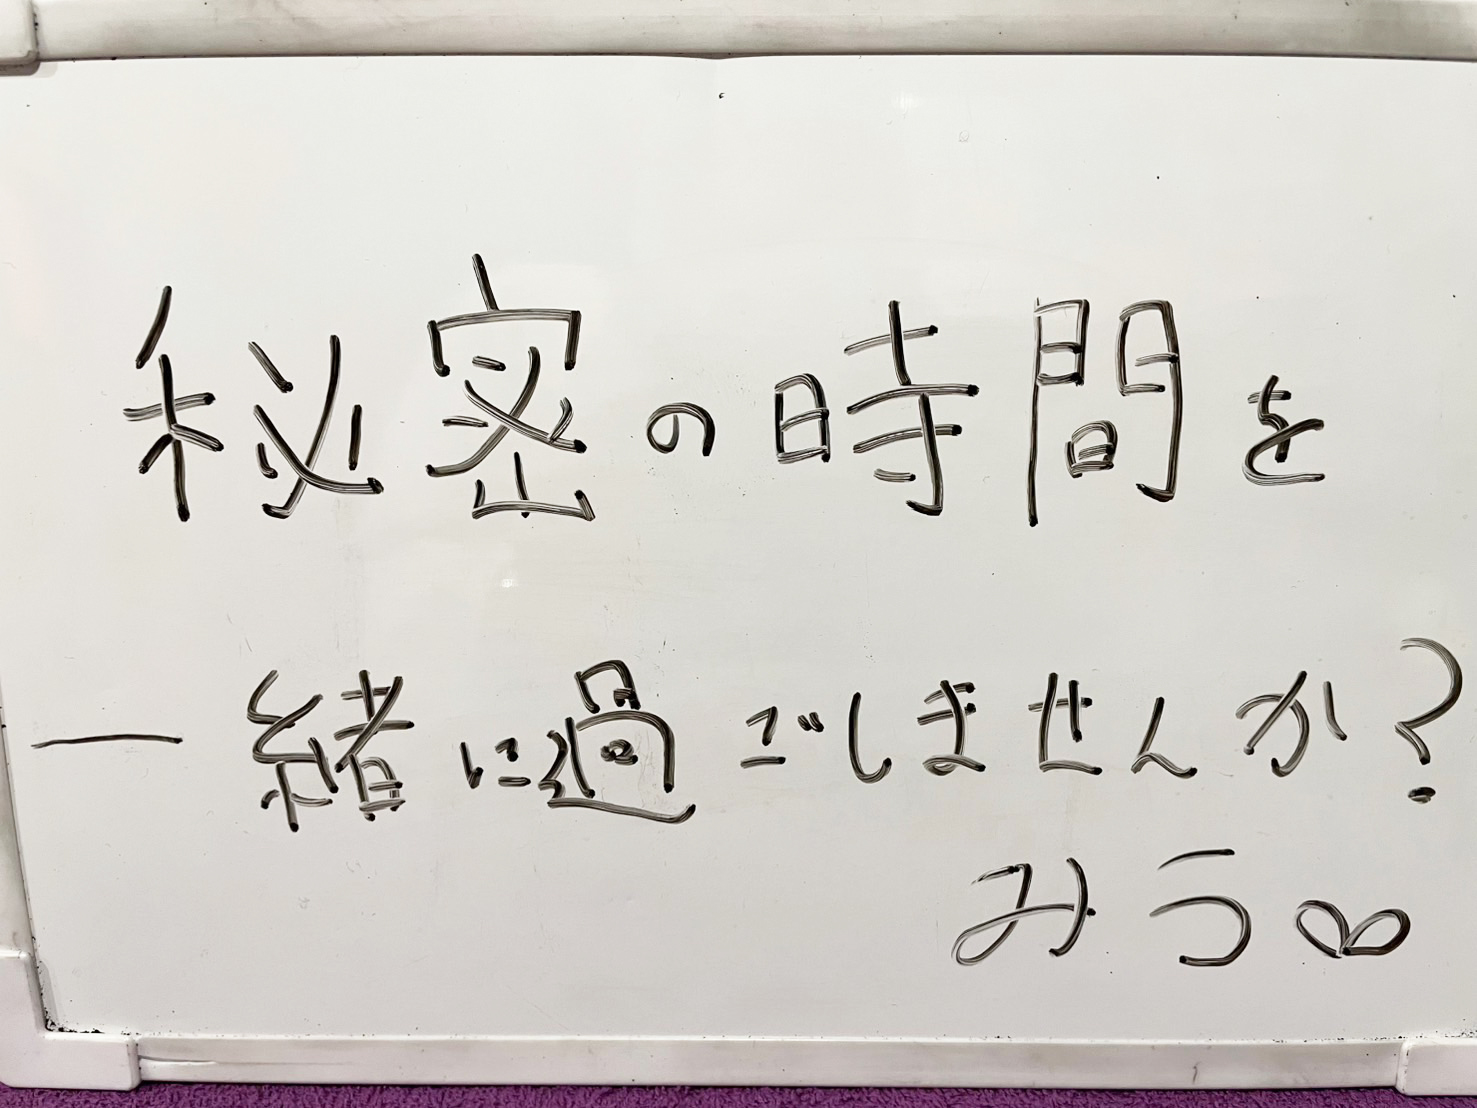 秘密の時間を
一緒に過ごしませんか?
みう♡